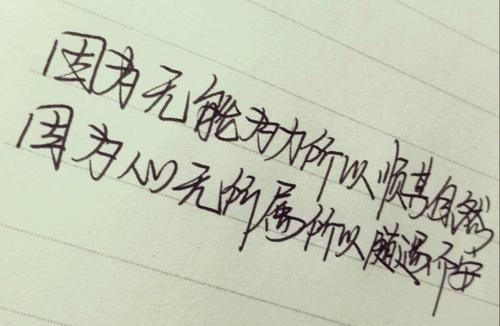 因为无能为力所以顺其自然
因为心无所属所以随遇而安